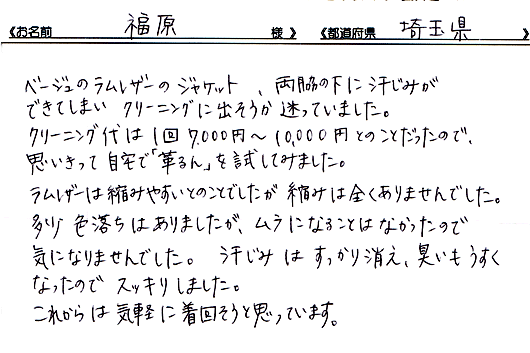 《お名前 福原 様》 《都道府県 埼玉県 》
ベージュのラムレザーのジャケット、両脇の下に汗じみが
できてしまい クリーニングに出そうか 迷っていました。
クリーニング代は 1回 7,000円～10,000円 とのことだったので、
思いきって 自宅で「革るん」を試してみました。
ラムレザーは縮みやすいとのことでしたが 縮みは全くありませんでした。
多少 色落ちはありましたが、ムラになることはなかったので
気になりませんでした。 汗じみは すっかり消え、臭いもうすく
なったので スッキリしました。
これからは 気軽に着回そうと思っています。